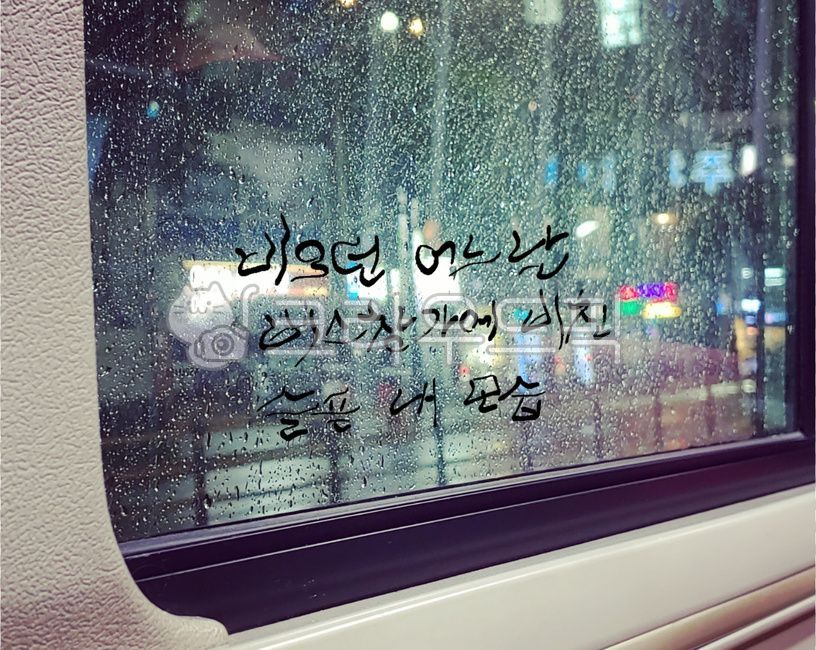 비오던 어느날
버스창가에 비친
슬픈 내 모습